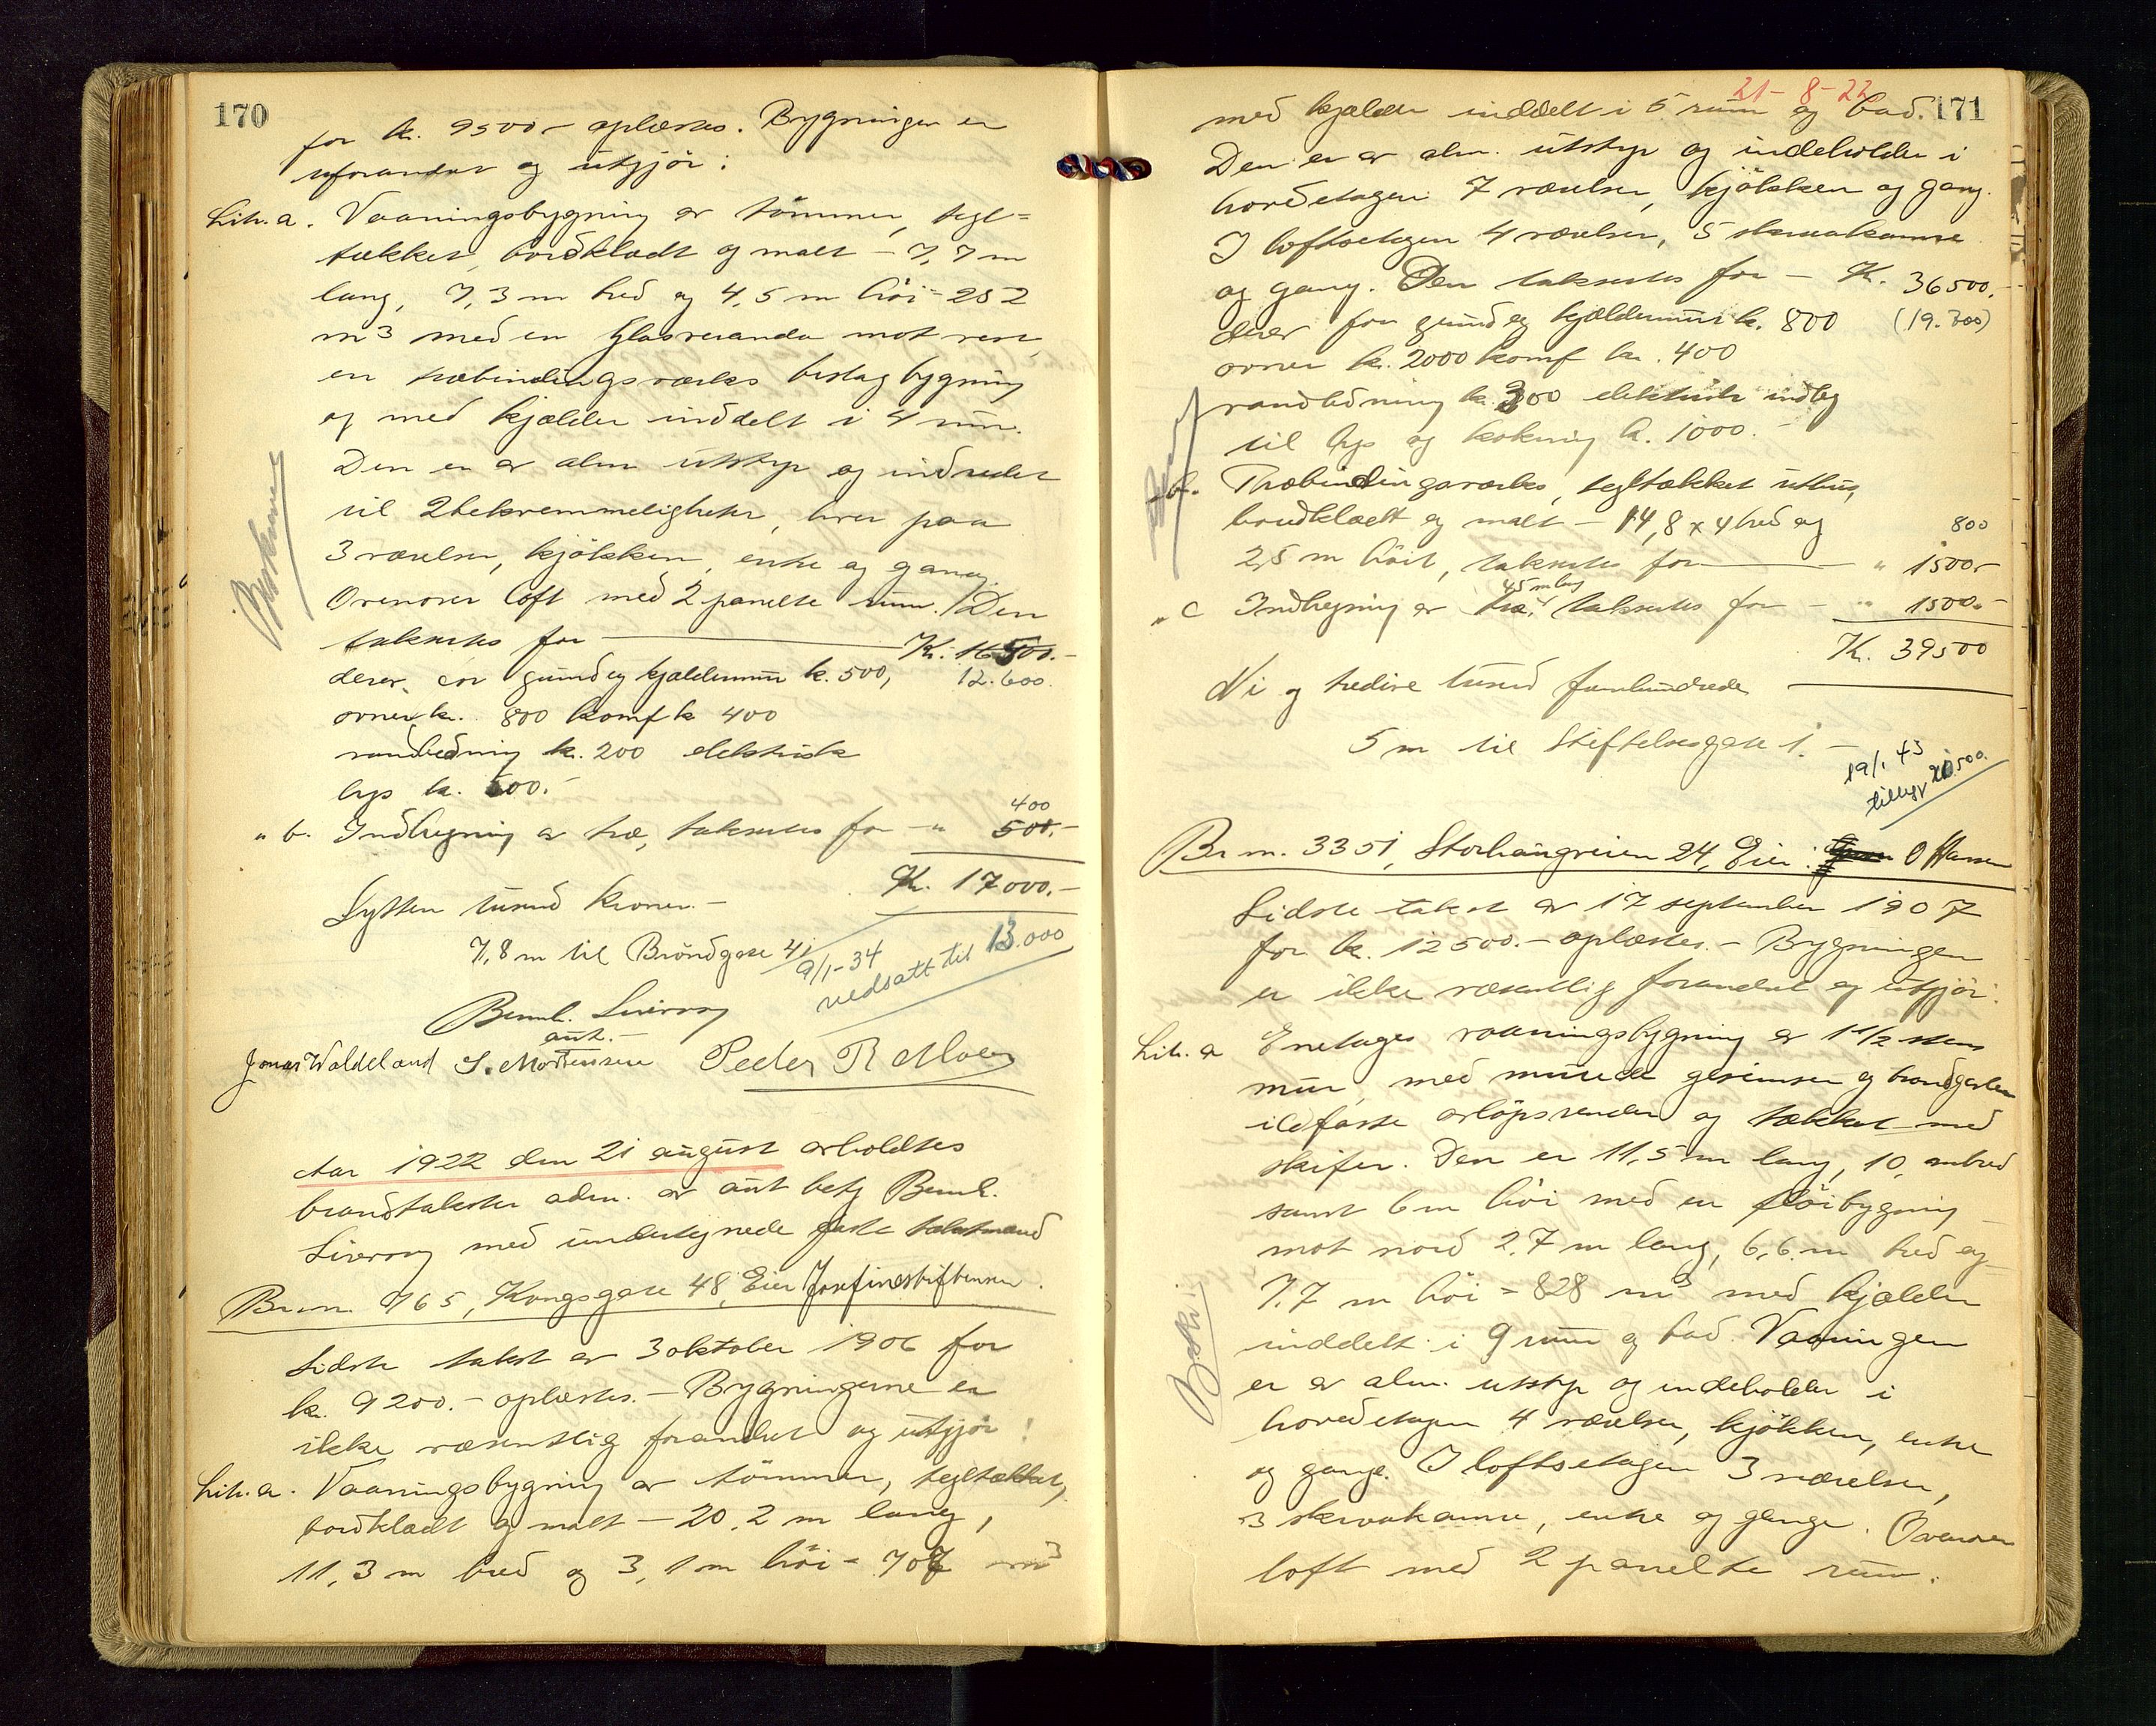 170
for kr. 9500.- oplæstes. Bygningen er
uforandret og utgjör:
Litr. a. Vaaningsbygning av tömmer, tegl=
tækket, bordklædt og malt - 7,7 m
lang, 7,3 m bred og 4,5 m höi = 252
m3 med en Glasveranda mot vest,
en træbindingsværks bislagbygning
og med kjælder inddelt i 4 rum.
Den er av alm utstyr og indredet
til 2 bekvemmeligheter, hver paa
3 værelser, kjökken, entre og gang.
Ovenover loft med 2 panelte rum. Den
takseres for Kr. 16500.-
derav for grund og kjældermur k. 500, 12.600.
ovner kr. 800 komf k 400
vandledning kr. 200 elektrisk
lys kr. 500.-
" b. Indhegning av træ, takseres for - " 500.-
400
Kr. 17000.-
Sytten tusend kroner.-
7,8 m til Bröndgate 41
9/1-34
nedsatt til 13.000
Beskrevet
Bernh. Siversøn
aut.-
Jonas Waldeland S. Mortensen Peder R Moen
Aar 1922 den 21 august avholdtes
brandtakster adm. av aut bets Bernh.
Siversøn med undertegnede faste takstmænd
Br. nr. 765, Kongsgate 48, Eier Josefinestiftensen.
Sidste takst av 3 oktober 1906 for
kr. 9200.- oplæstes.- Bygningerne er
ikke væsentlig forandret og utgjör:
Litr. a. Vaaningsbygning av tömmer, tegltækket,
bordklædt og malt - 20,2 m lang,
11,3 m bred og 3,1 m höi = 707 m3
21-8-22
171
med kjælder inddelt i 5 rum og bad.
Den er av alm. utstyr og indeholder i
hovedetagen 7 værelser, kjökken og gang.
I loftsetagen 4 værelser, 5 skraakamre
og gang. Den takseres for - Kr. 36500.-
derav for grund og kjældermur k. 800 (19.700)
ovner k. 2000 komf kr. 400
vandledning kr. 300 elektrisk indlæg
til lys og kokning kr. 1000.-
" b. Træbindingsværks, tegltækket uthus,
bordklædt og malt - 14,8 x 4 bred og 800
2,5 m höit, takseres for " 1500.-
45 m lang
" c Indhegning av træ, takseres for - " 1500.-
Kr. 39500
Ni og tredive tusend femhundrede
5 m til Stiftelsesgate 1.-
19/1 43
tillegg 20.500.
Br nr. 3351, Storhaugveien 24, Eier: O Hansen
Sidste takst av 17 september 1907
for kr. 12500.- oplæstes.- Bygningen
er ikke væsentlig forandret og utgjör:
Litr. a Enetages vaaningsbygning av 1 1/2 stens
mur, med murede gesimser og brandgavler
ildfaste avlöpsrender og tækket med
skifer. Den er 11,5 m lang, 10, m bred
samt 6 m höi med en flöibygning
mot nord 2,7 m lang, 6,6 m bred og
7,7 m höi = 828 m3 med kjælder
inddelt i 9 rum og bad. Vaaningen
er av alm. utstyr og indeholder i
hovedetagen 4 værelser, kjökken, entre
og gange. I loftsetagen 3 værelser,
3 skraakamre, entre og gange. Ovenover
loft med 2 panelte rum.